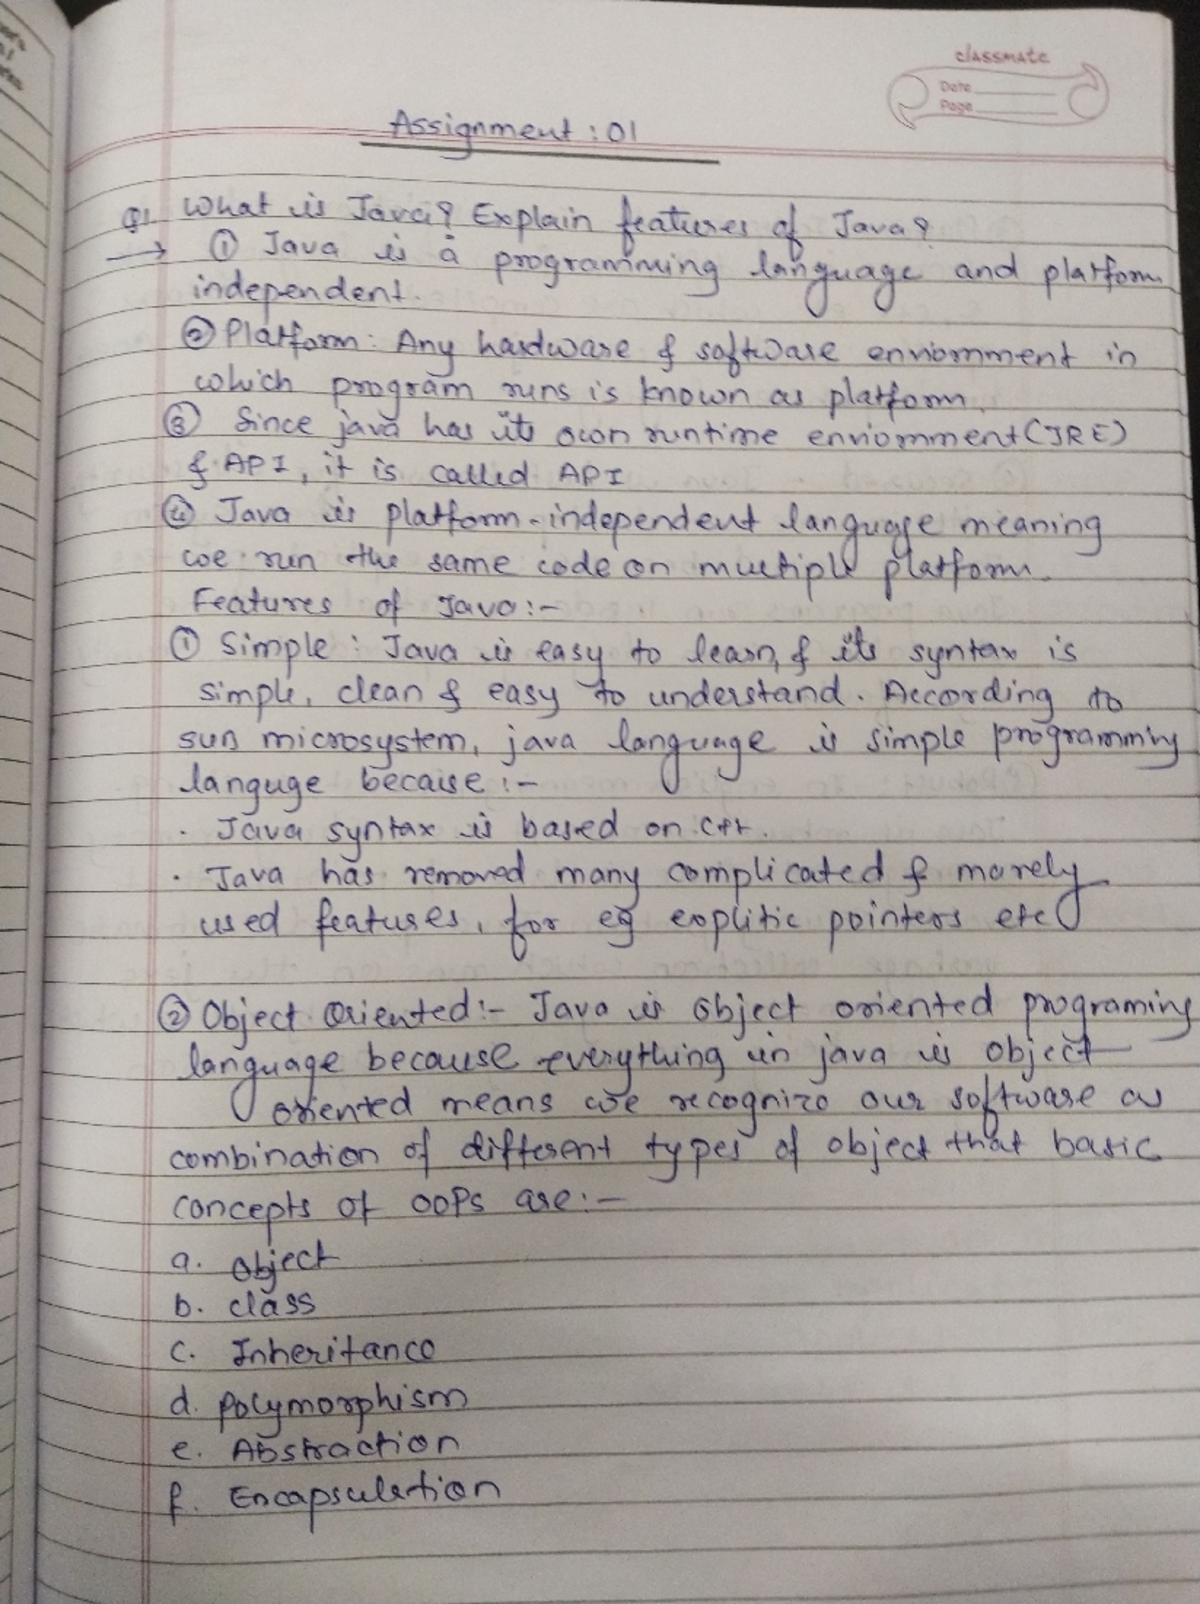 classmate
Date
Page
Assignment : 01
Q1. What is Java? Explain features of Java?
→ ① Java is a programming language and platform
independent.
② Platform: Any hardware & software enviornment in
which program runs is known as platform.
③ Since java has its own runtime enviornment (JRE)
& API, it is called API
④ Java is platform-independent language meaning
we run the same code on multiple platform.
Features of Java:-
① Simple : Java is easy to learn, & its syntax is
simple, clean & easy to understand. According to
sun microsystem, java language is simple programming
languge because :-
· Java syntax is based on C++.
· Java has removed many complicated & marely
used features, for eg explitic pointers etc
② Object Oriented:- Java is object oriented programing
language because everything in java is object
oriented means we recognize our software as
combination of different types of object that basic
concepts of OOPs are:-
a. Object
b. class
c. Inheritance
d. Polymorphism
e. Abstraction
f. Encapsulation